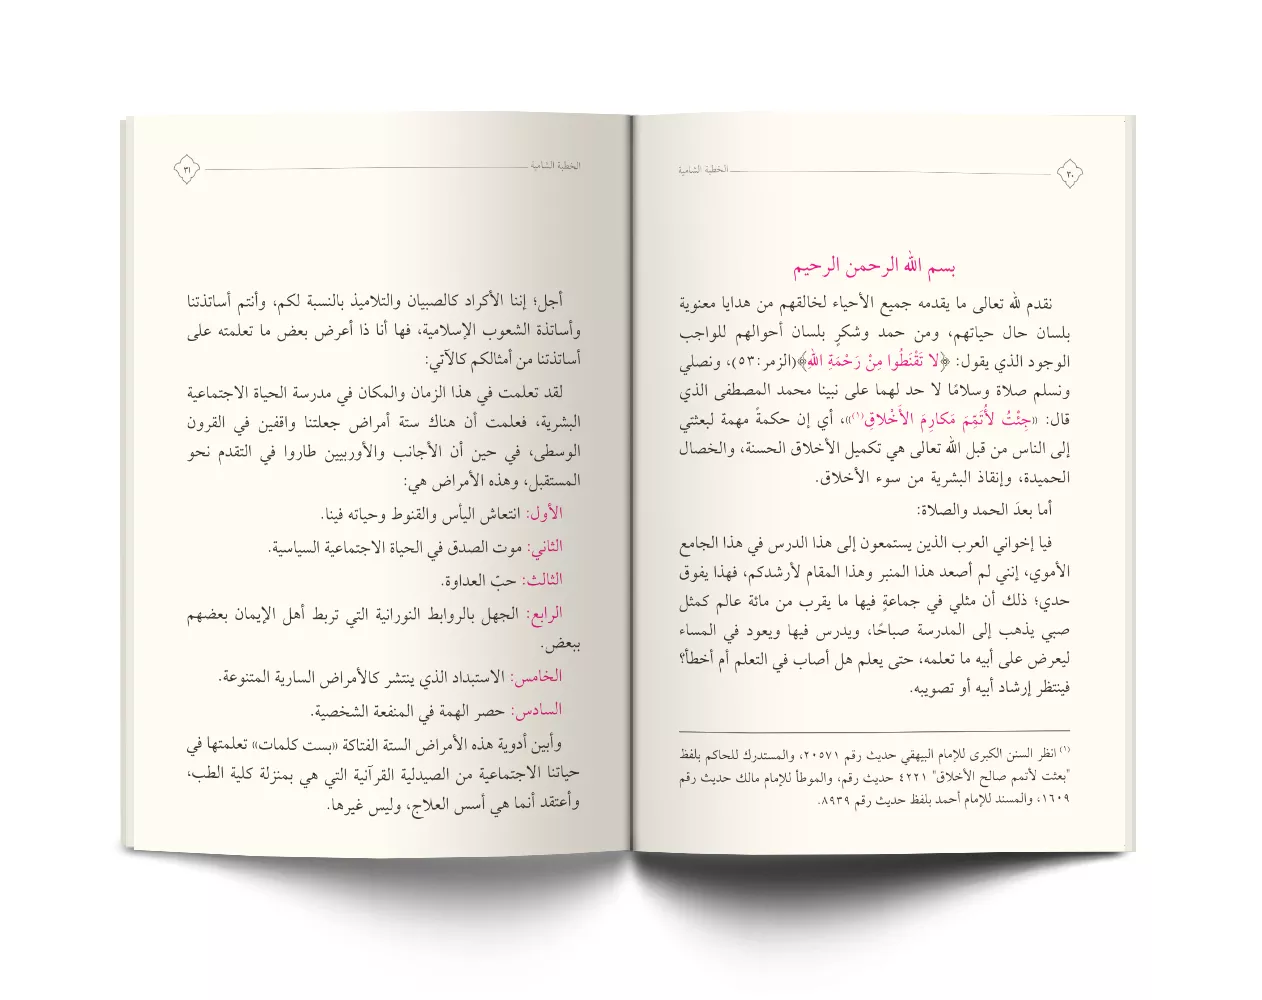 الخطبة الشامية ٣٠
بسم الله الرحمن الرحيم
نقدم لله تعالى ما يقدمه جميع الأحياء لخالقهم من هدايا معنوية
بلسان حال حياتهم، ومن حمد وشكرٍ بلسان أحوالهم للواجب
الوجود الذي يقول: ﴿لا تَقْنَطُوا مِنْ رَحْمَةِ اللهِ﴾(الزمر:٥٣)، ونصلي
ونسلم صلاة وسلامًا لا حد لهما على نبينا محمد المصطفى الذي
قال: «جِئْتُ لأُتَمِّمَ مَكارِمَ الأَخْلاقِ(١)»، أي إن حكمةً مهمة لبعثتي
إلى الناس من قبل الله تعالى هي تكميل الأخلاق الحسنة، والخصال
الحميدة، وإنقاذ البشرية من سوء الأخلاق.
أما بعدَ الحمد والصلاة:
فيا إخواني العرب الذين يستمعون إلى هذا الدرس في هذا الجامع
الأموي، إنني لم أصعد هذا المنبر وهذا المقام لأرشدكم، فهذا يفوق
حدي؛ ذلك أن مثلي في جماعةٍ فيها ما يقرب من مائة عالم كمثل
صبي يذهب إلى المدرسة صباحًا، ويدرس فيها ويعود في المساء
ليعرض على أبيه ما تعلمه، حتى يعلم هل أصاب في التعلم أم أخطأ؟
فينتظر إرشاد أبيه أو تصويبه.
(١) انظر السنن الكبرى للإمام البيهقي حديث رقم ٢٠٥٧١، والمستدرك للحاكم بلفظ
"بعثت لأتمم صالح الأخلاق" ٤٢٢١ حديث رقم، والموطأ للإمام مالك حديث رقم
١٦٠٩، والمسند للإمام أحمد بلفظ حديث رقم ٨٩٣٩.
الخطبة الشامية ٣١
أجل؛ إننا الأكراد كالصبيان والتلاميذ بالنسبة لكم، وأنتم أساتذتنا
وأساتذة الشعوب الإسلامية، فها أنا ذا أعرض بعض ما تعلمته على
أساتذتنا من أمثالكم كالآتي:
لقد تعلمت في هذا الزمان والمكان في مدرسة الحياة الاجتماعية
البشرية، فعلمت أن هناك ستة أمراض جعلتنا واقفين في القرون
الوسطى، في حين أن الأجانب والأوربيين طاروا في التقدم نحو
المستقبل، وهذه الأمراض هي:
الأول: انتعاش اليأس والقنوط وحياته فينا.
الثاني: موت الصدق في الحياة الاجتماعية السياسية.
الثالث: حبّ العداوة.
الرابع: الجهل بالروابط النورانية التي تربط أهل الإيمان بعضهم
ببعض.
الخامس: الاستبداد الذي ينتشر كالأمراض السارية المتنوعة.
السادس: حصر الهمة في المنفعة الشخصية.
وأبين أدوية هذه الأمراض الستة الفتاكة «بست كلمات» تعلمتها في
حياتنا الاجتماعية من الصيدلية القرآنية التي هي بمنزلة كلية الطب،
وأعتقد أنما هي أسس العلاج، وليس غيرها.